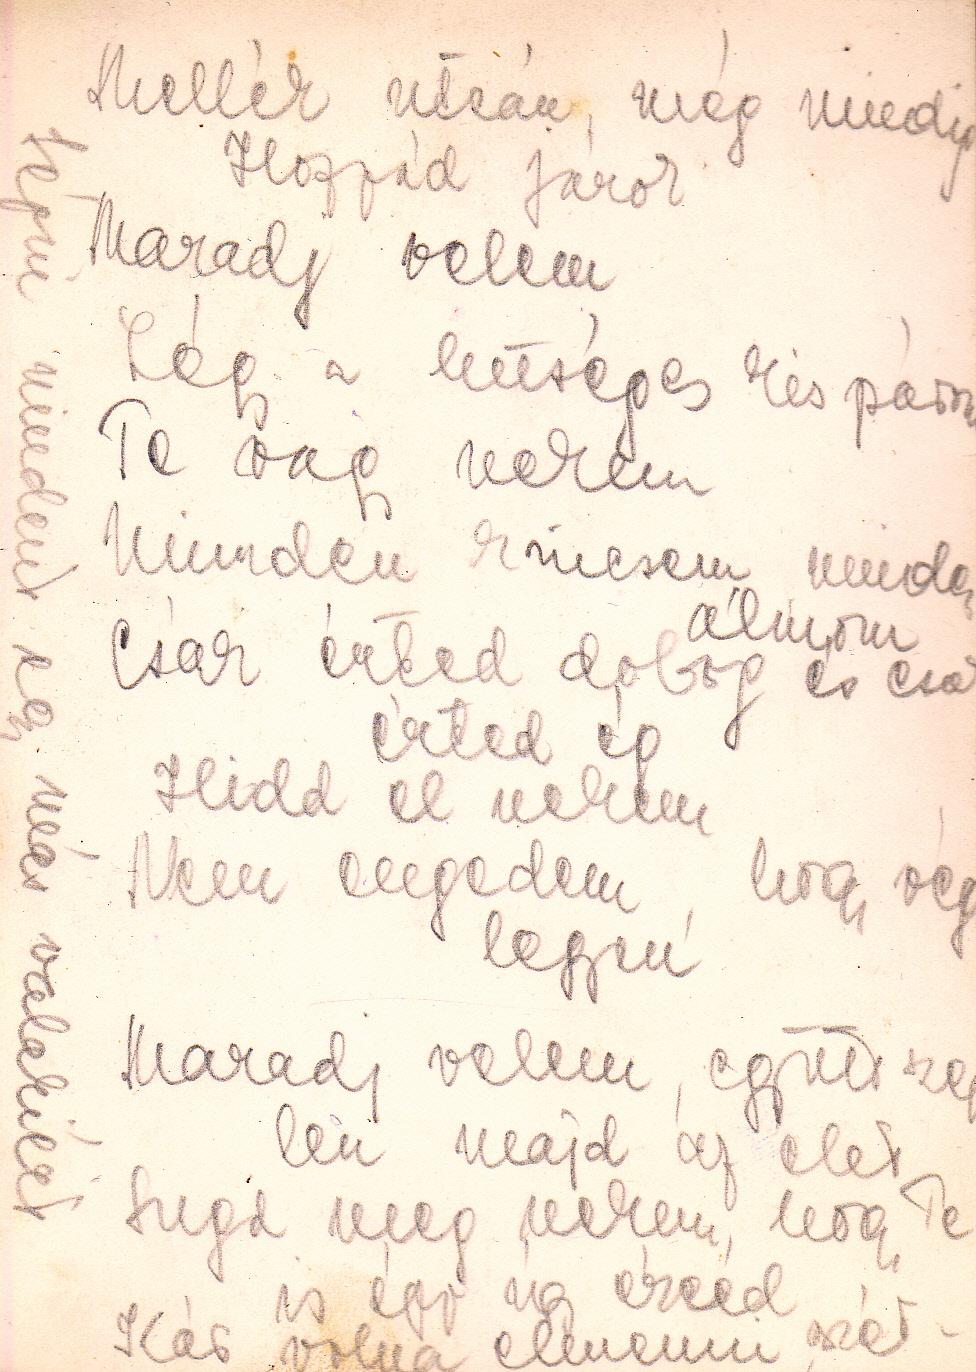 Mellék utcán, még mindig
Hozzád járok
Maradj velem
Lágy a hűtséges kis párom
Te vagy nekem
Minden kincsem minden
álmom
Csak érted dobog és csak
érted ég
Hidd el nekem
Nem engedem, hogy vége
legyen
Maradj velem, együtt szép
lén majd az élet
Sugd meg nekem, hogy Te
is épp úgy érzed
Kár volna elmenni szét-
tépni mindent egy más valakiért